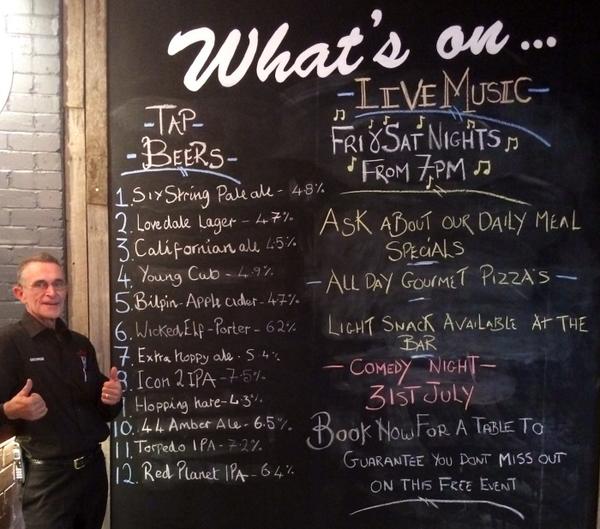 What's on...
TAP
BEERS
1. Six String Pale ale - 4.8%
2. Lovedale Lager - 4.7%
3. Californian ale 4.5%
4. Young Cub - 4.9%
5. Bilpin - Apple cider - 4.7%
6. Wicked Elf - Porter - 6.2%
7. Extra Hoppy ale - 5.4%
8. Icon 2 IPA - 7.5%
9 Hopping hare - 4.3%
10. 44 Amber Ale - 6.5%
11. Torpedo IPA - 7.2%
12. Red Planet IPA - 6.4%
- LIVE MUSIC -
FRI & SAT NIGHTS
FROM 7PM
ASK ABOUT OUR DAILY MEAL
SPECIALS
- ALL DAY GOURMET PIZZA'S -
LIGHT SNACK AVAILABLE AT THE
BAR
- COMEDY NIGHT -
31ST JULY
BOOK NOW FOR A TABLE TO
GUARANTEE YOU DONT MISS OUT
ON THIS FREE EVENT